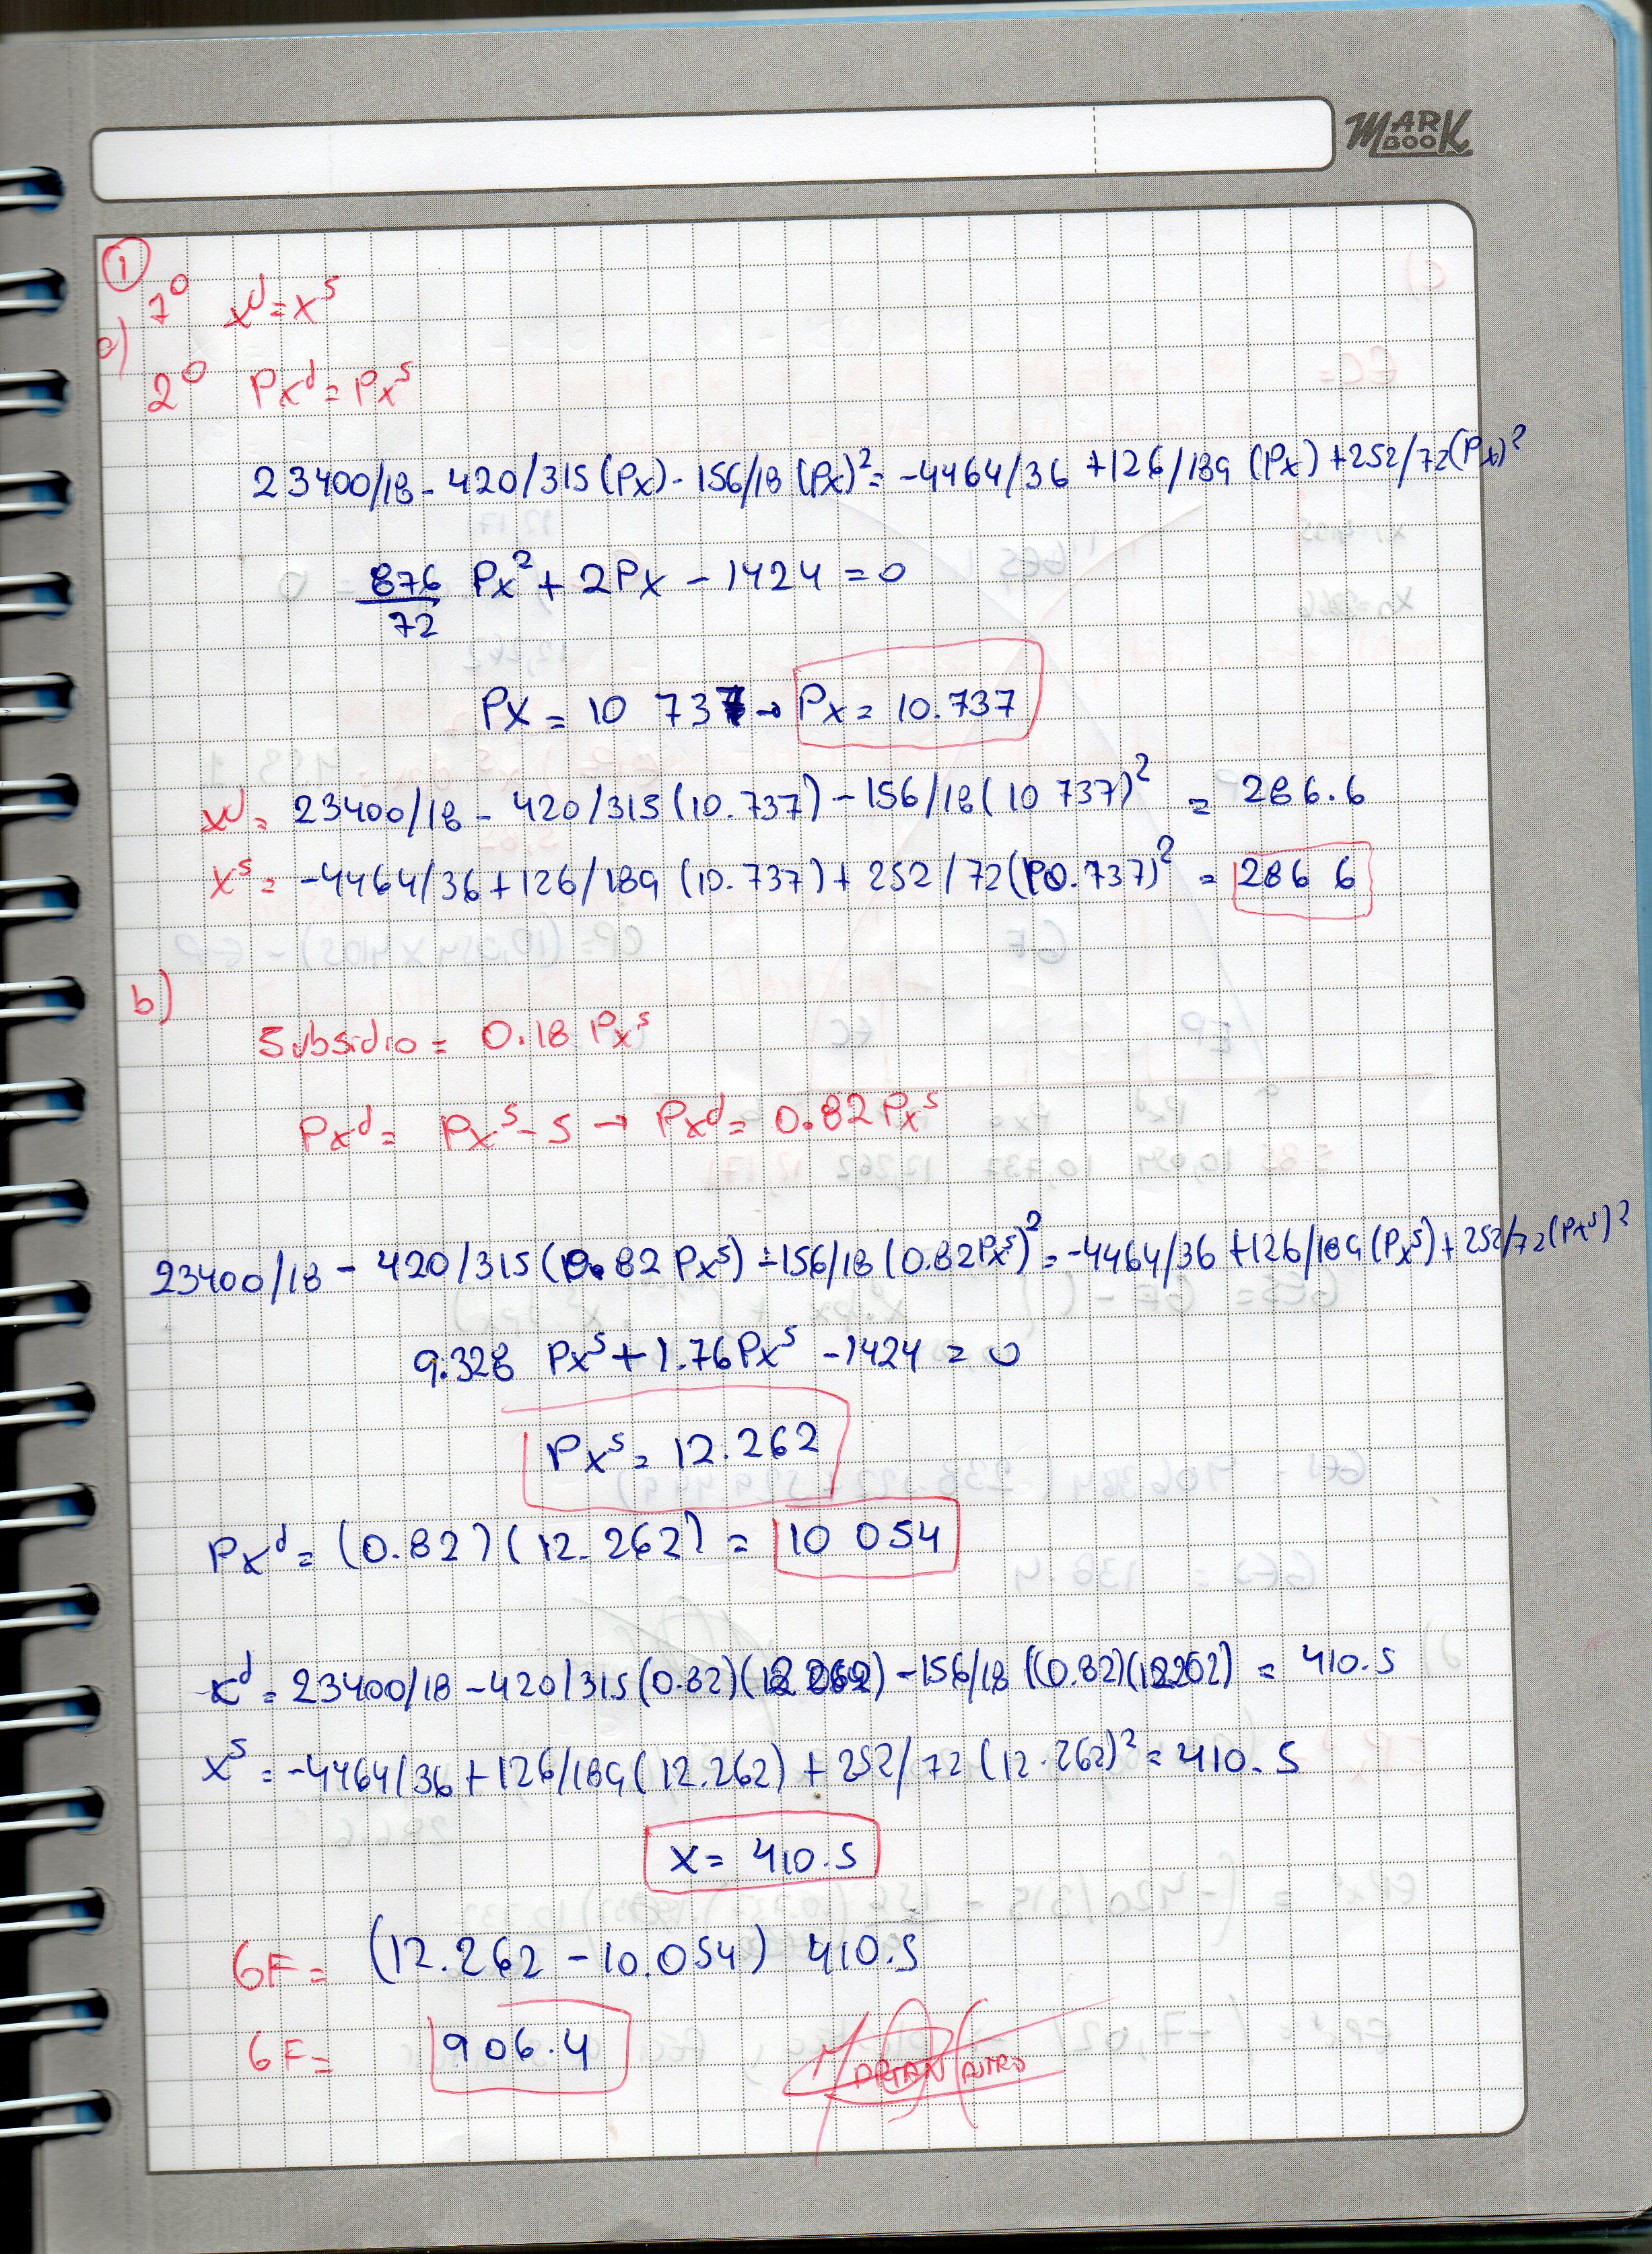 MARK BOOK
①
1º x^d = x^s
a)
2º Px^d = Px^s
23400/18 - 420/315 (Px) - 156/18 (Px)² = -4464/36 + 126/189 (Px) + 252/72 (Px)²
876/72 Px² + 2Px - 1424 = 0
Px = 10 737 → Px = 10.737
x^d = 23400/18 - 420/315 (10.737) - 156/18 (10 737)² = 286.6
x^s = -4464/36 + 126/189 (10.737) + 252/72 (10.737)² = 286 6
b)
Subsidio = 0.18 Px^s
Px^d = Px^s - S → Px^d = 0.82 Px^s
23400/18 - 420/315 (0.82 Px^s) - 156/18 (0.82 Px^s)² = -4464/36 + 126/189 (Px^s) + 252/72 (Px^s)²
9.328 Px^s + 1.76 Px^s - 1424 = 0
Px^s = 12.262
Px^d = (0.82) (12.262) = 10 054
x^d = 23400/18 - 420/315 (0.82) (12 262) - 156/18 ((0.82) (12262) = 410.5
x^s = -4464/36 + 126/189 (12.262) + 252/72 (12.262)² = 410.5
x = 410.5
GF = (12.262 - 10.054) 410.5
GF = 906.4